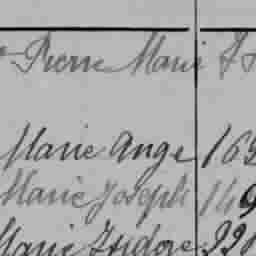 Pierre Marie
Marie Ange 16
Marie Joseph 149
Marie Isidore 22